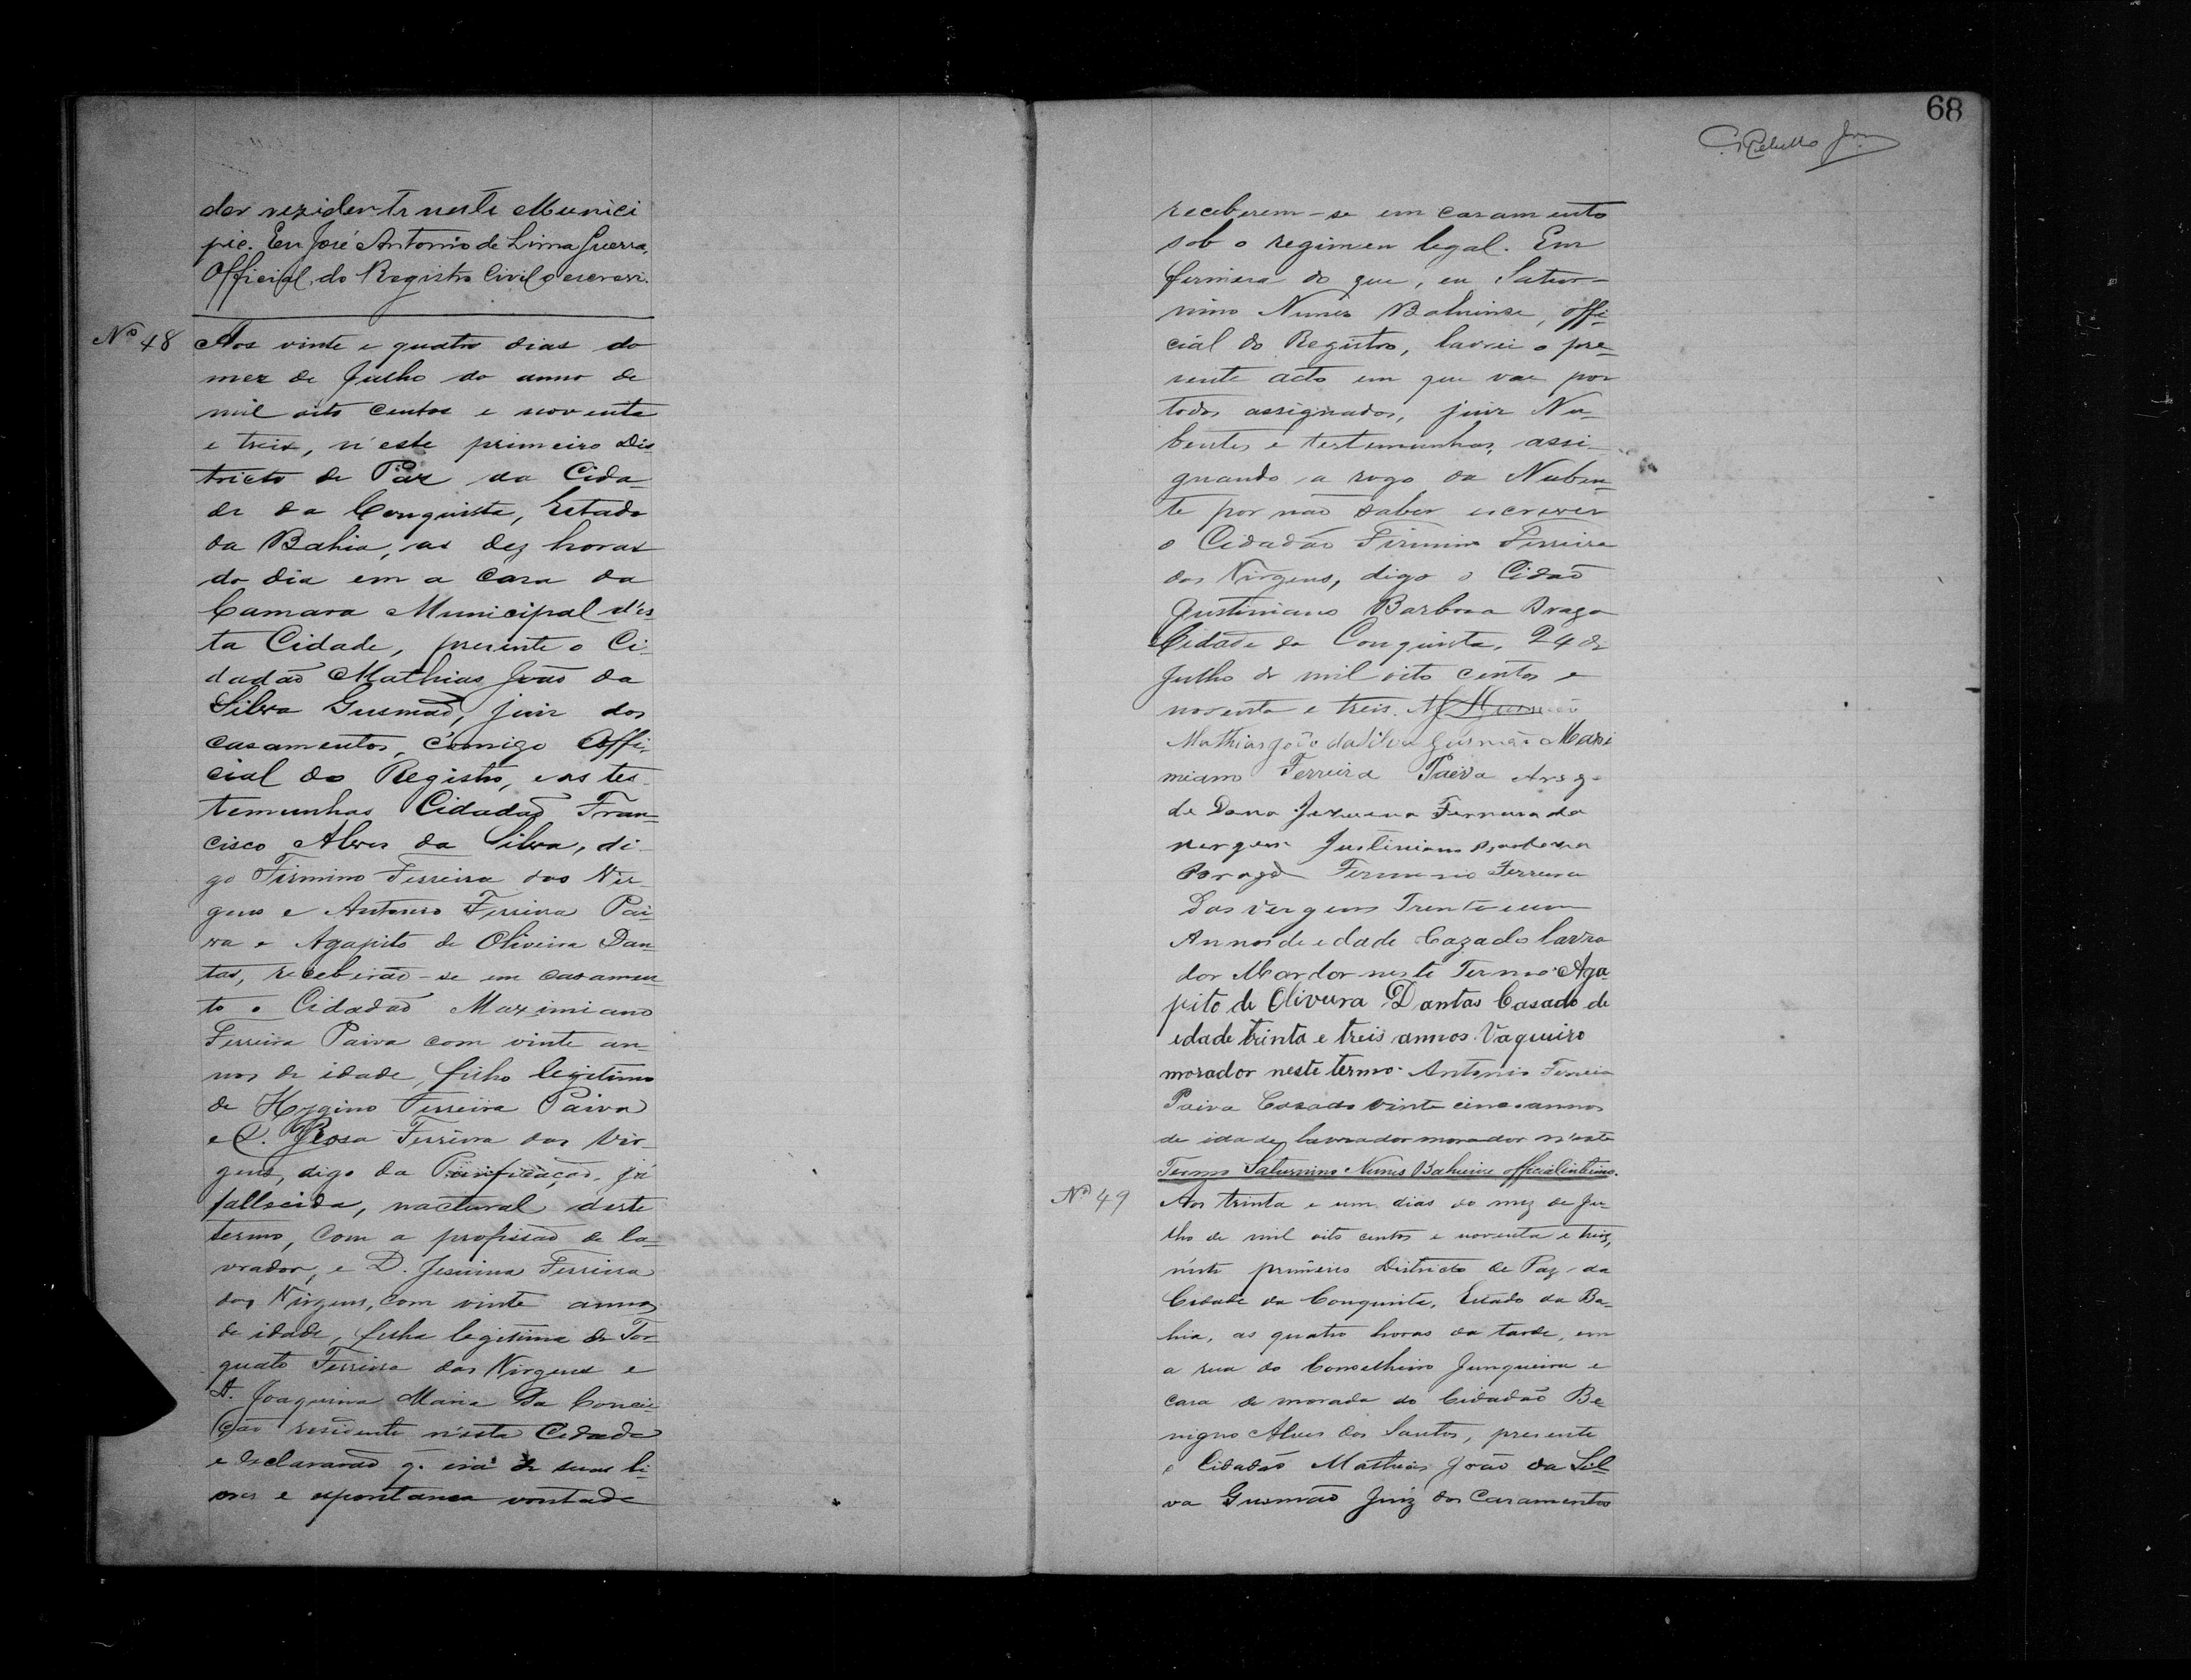 dor rezidente neste Munici
pio. Eu José Antonio de Lima Guerra,
Official do Registro Civil o escrevi.
Nº 48 Aos vinte e quatro dias do
mez de Julho do anno de
mil oito centos e noventa
e treis, n'este primeiro Dis
tricto de Paz da Cida-
de da Conquista, Estado
da Bahia, as dez horas
do dia em a Casa da
Camara Municipal d'es
ta Cidade, presente o Ci-
dadaõ Mathias João da
Silva Gusmaõ, juiz dos
casamentos, cómigo Offi-
cial do Registro, e as tes-
temunhas Cidadaõ Fran-
cisco Alves da Silva, di-
go Firmino Ferreira das Vir-
gens e Antonio Ferreira Pai-
va e Agapito de Oliveira Dan-
tas, receberaõ-se em casamen
to o Cidadaõ Maximiano
Ferreira Paiva com vinte an-
nos de idade, filho legitimo
de Hygino Ferreira Paiva
e D. Rosa Ferreira das Vir-
gens, digo da Purificaçaõ, já
fallecida, nactural deste
termo, com a profissaõ de la-
vrador, e D. Jesuina Ferreira
das Virgens, com vinte annos
de idade, filha legitima de Tor
quato Ferreira das Virgens e
D. Joaquina Maria da Concei-
çaõ residente n'esta Cidade
e declararaõ q. erá de suas li-
vres e espontanea vontade
68
receberem-se em casamento
sob o regimen legal. Em
firmesa do que, eu Satur-
nino Nunes Bahiense, offi-
cial do Registro, lavrei o pre-
sente acto em que vae por
todos assignados, juiz Nu-
bentes e testemunhas, assi-
gnando a rogo da Nuben-
te por naõ saber escrever
o Cidadão Firmino Ferreira
das Virgens, digo o Cidaõ
Justiniano Barbosa Braga
Cidade da Conquista, 24 de
Julho de mil oito centos e
noventa e treis.
Mathias João da Silva Gusmão Maxi
miano Ferreira Paiva Arogo
de Dona Jezuina Ferreira da
Vergens Justiniano Barbosa
Braga Firmino Ferreira
Das Vergens Trenta e um
Annos de edade Cazado lavra
dor Mordor neste Termo Aga-
pito de Oliveira Dantas Casado de
edade trinta e treis annos. Vaqueiro
morador neste termo. Antonio Ferreira
Paiva Casado vinte cinco annos
de idade lavrador morador n'este
Termo Saturnino Nunes Bahiense official interino.
Nº 49 Aos trinta e um dias do mez de Ju-
lho de mil oito centos e noventa e treis,
n'este primeiro Districto de Paz da
Cidade da Conquista, Estado da Ba-
hia, as quatro horas da tarde, em
a rua do Conselheiro Junqueira e
casa de morada do Cidadaõ Be
nigno Alves dos Santos, presente
o Cidadaõ Mathias João da Sil-
va Gusmaõ Juiz dos Casamentos